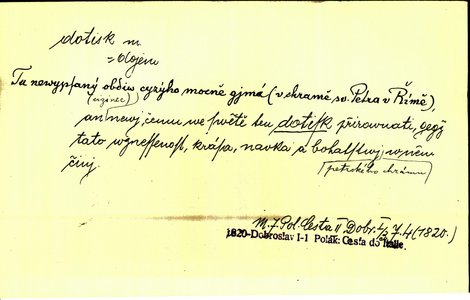 dotisk m
= dojem
Tu newypsaný obdiw cyzýho mocně gjmá (v chrámě sv. Petra v Římě),
(cizinec)
an newj, čemu we swětě ten dotisk přirownati, gegž
tato wzneſſenoſt, kráſa, nauka a bohatſtwj w něm
činj.
petrského chrámu
M. J. Pol. Cesta II Dobr. I/2 7.4 (1820.)
1820-Dobroslav I-1 Polák: Cesta do Italie.